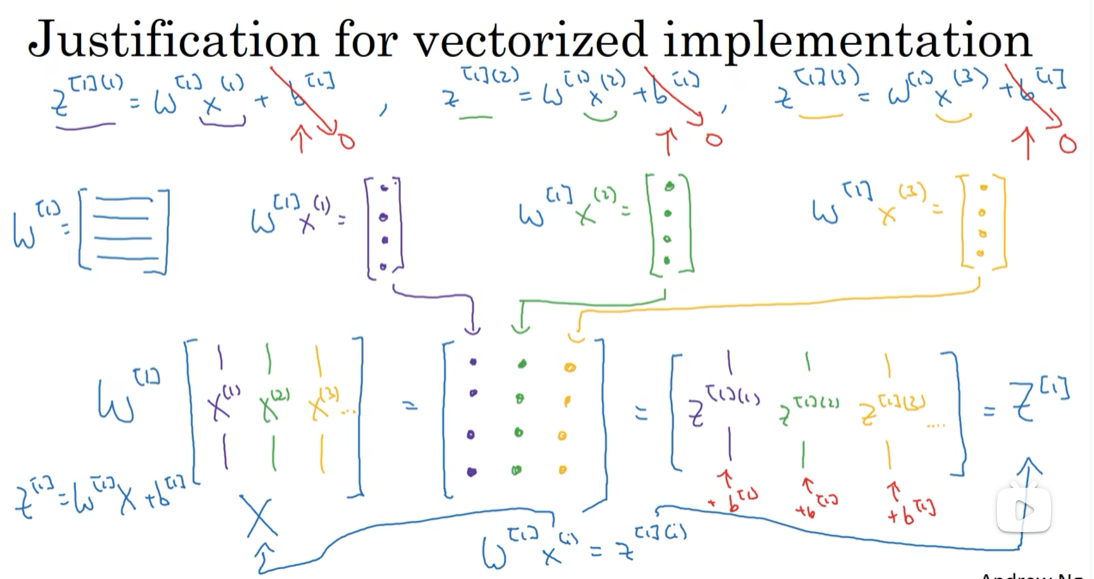 Justification for vectorized implementation
z^[1](1) = W^[1] x^(1) + b^[1] → 0 , z^[1](2) = W^[1] x^(2) + b^[1] → 0 , z^[1](3) = W^[1] x^(3) + b^[1] → 0
W^[1] = [ ] W^[1] x^(1) = [ ] W^[1] x^(2) = [ ] W^[1] x^(3) = [ ]
W^[1] [ x^(1) x^(2) x^(3) ... ] = [ ] = [ z^[1](1) z^[1](2) z^[1](3) .... ] = Z^[1]
+ b^[1] + b^[1] + b^[1]
Z^[1] = W^[1] X + b^[1] X
W^[1] x^(i) = z^[1](i)